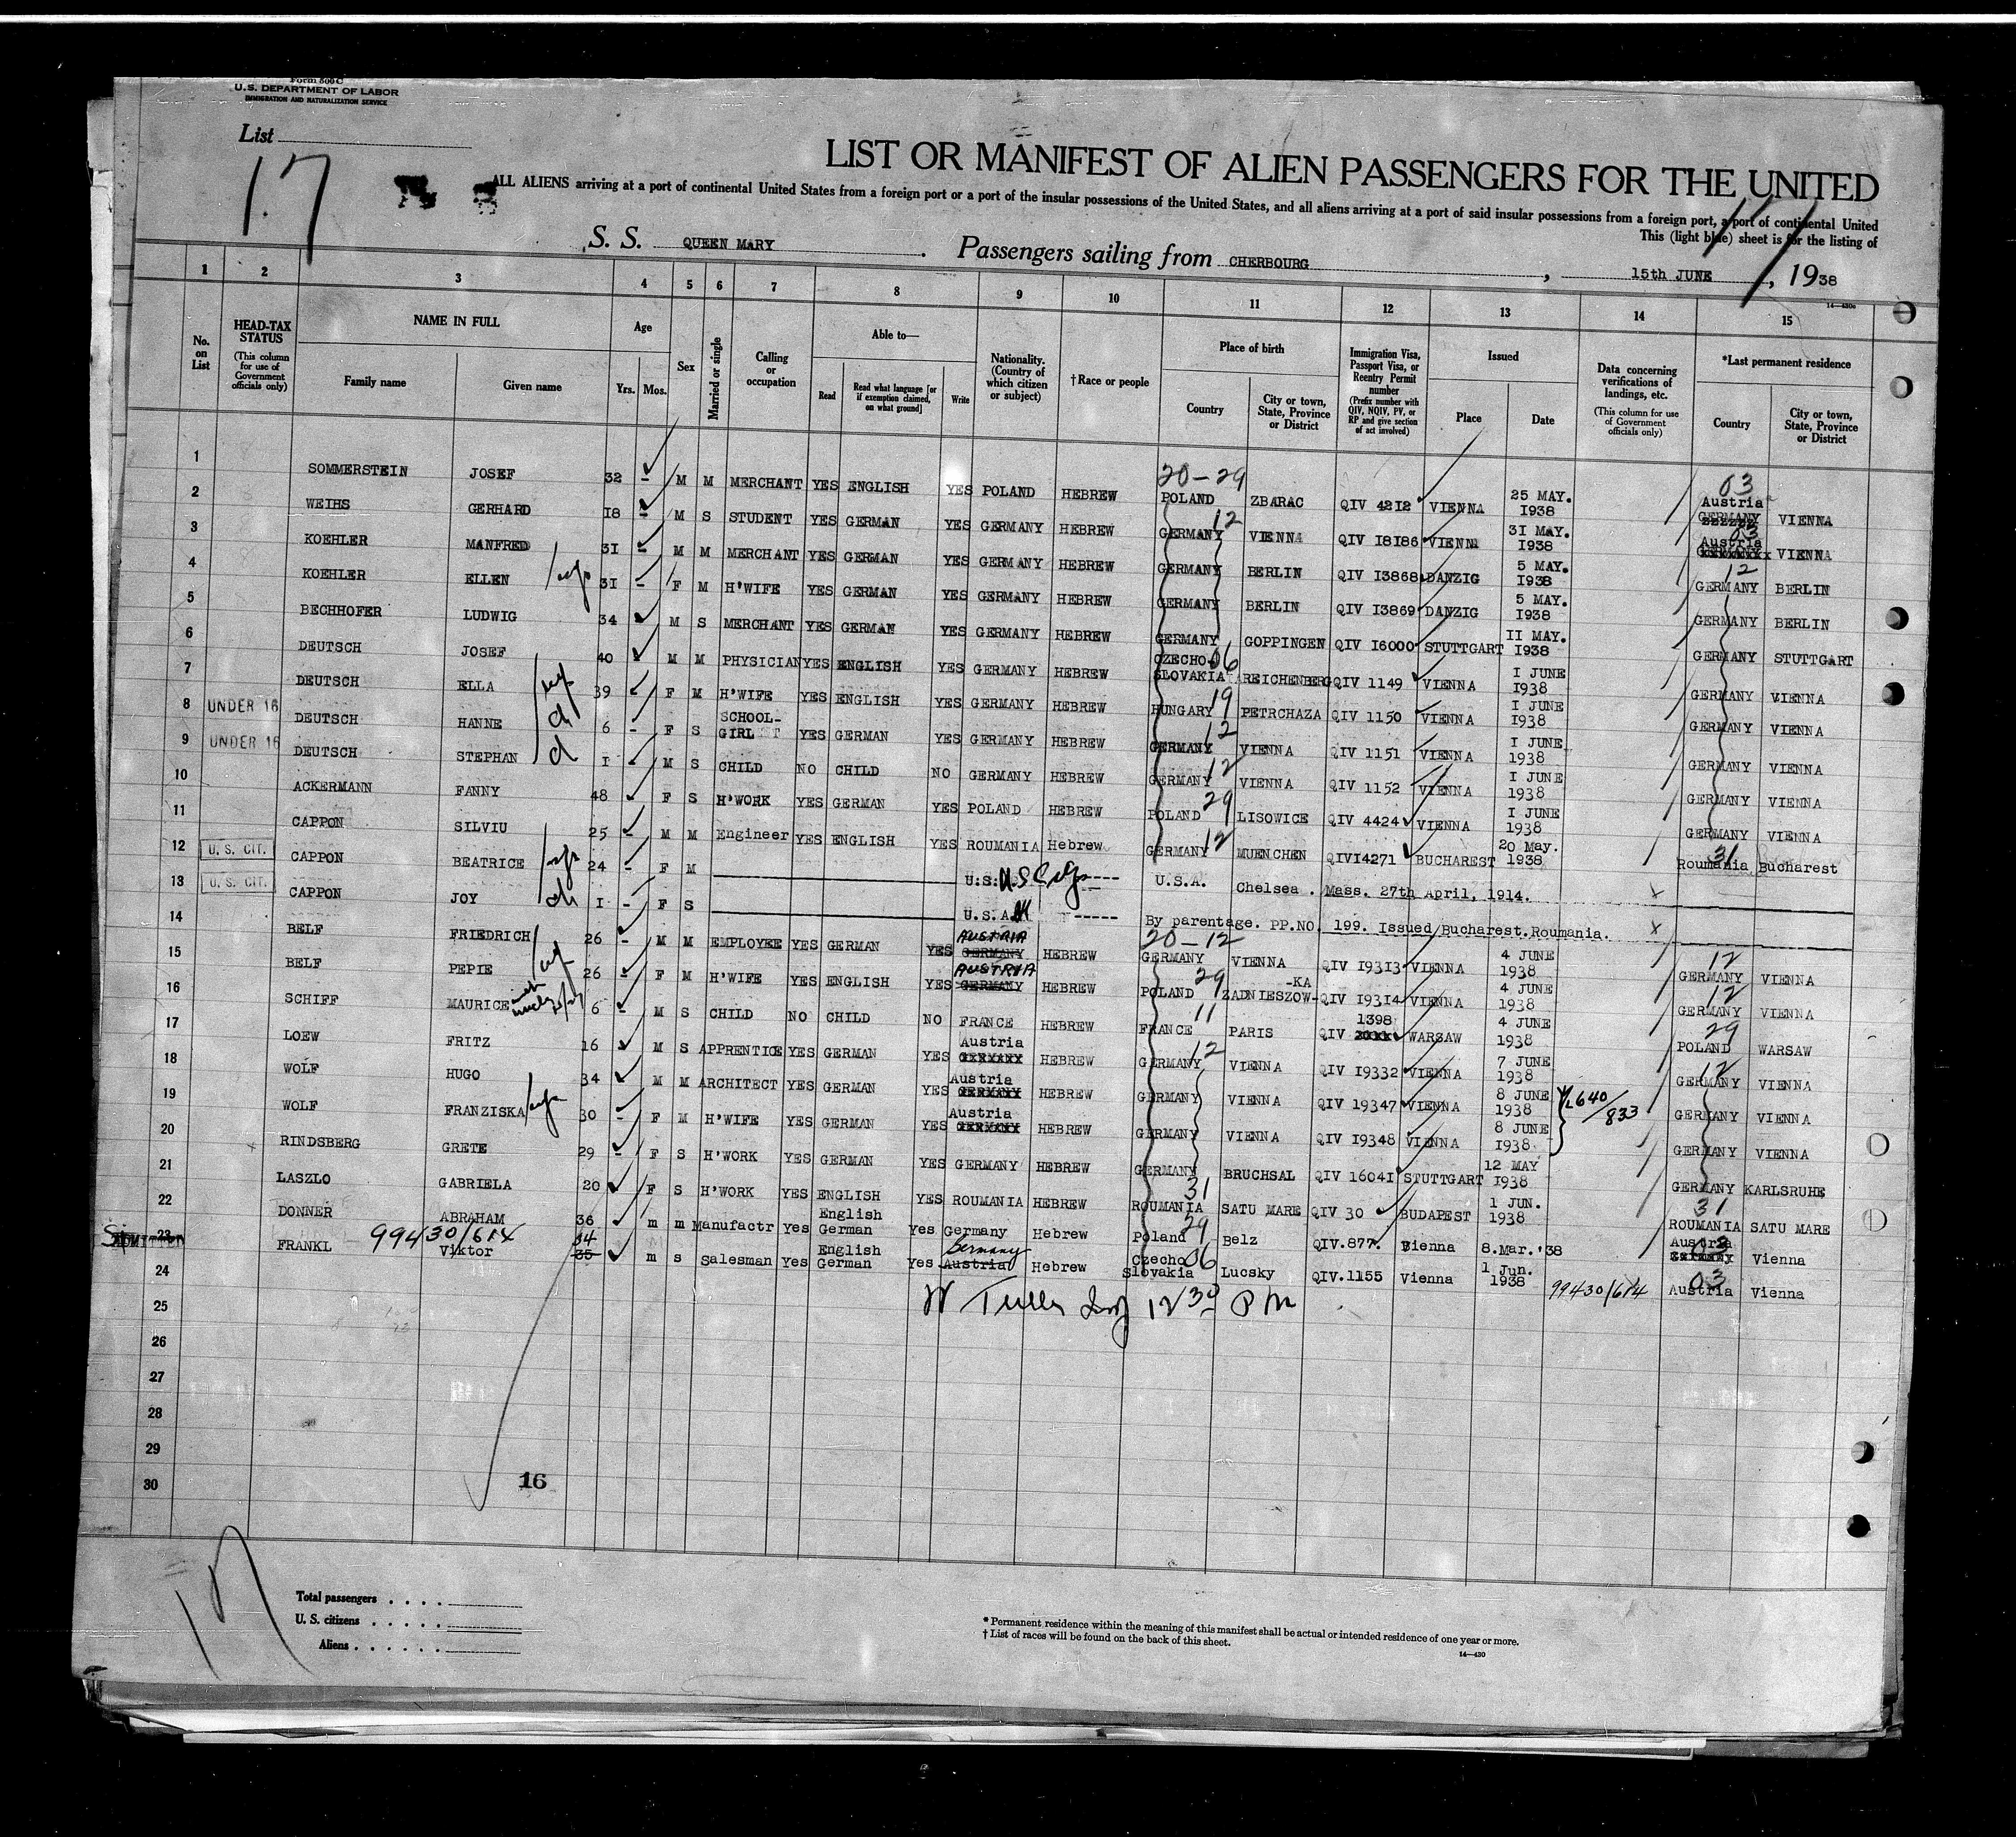 Form 500 C
U.S. DEPARTMENT OF LABOR
IMMIGRATION AND NATURALIZATION SERVICE
List
17
LIST OR MANIFEST OF ALIEN PASSENGERS FOR THE UNITED
ALL ALIENS arriving at a port of continental United States from a foreign port or a port of the insular possessions of the United States, and all aliens arriving at a port of said insular possessions from a foreign port, a port of continental United
This (light blue) sheet is for the listing of
S. S. QUEEN MARY . Passengers sailing from CHERBOURG , 15th JUNE , 1938
14—430c
1 2 3 4 5 6 7 8 9 10 11 12 13 14 15
No. on List HEAD-TAX STATUS (This column for use of Government officials only) NAME IN FULL Family name Given name Age Yrs. Mos. Sex Married or single Calling or occupation Able to— Read Read what language [or if exemption claimed, on what ground] Write Nationality. (Country of which citizen or subject) †Race or people Place of birth Country City or town, State, Province or District Immigration Visa, Passport Visa, or Reentry Permit number (Prefix number with QIV, NQIV, PV, or RP and give section of act involved) Issued Place Date Data concerning verifications of landings, etc. (This column for use of Government officials only) *Last permanent residence Country City or town, State, Province or District
1 SOMMERSTEIN JOSEF 32 - M M MERCHANT YES ENGLISH YES POLAND HEBREW 20-29 POLAND ZBARAC QIV 4212 VIENNA 25 MAY. 1938 03 Austria GERMANY VIENNA
2 WEIHS GERHARD 18 - M S STUDENT YES GERMAN YES GERMANY HEBREW GERMANY 12 VIENNA QIV 18186 VIENNA 31 MAY. 1938 03 Austria GERMANY VIENNA
3 KOEHLER MANFRED 31 - M M MERCHANT YES GERMAN YES GERMANY HEBREW GERMANY BERLIN QIV 13868 DANZIG 5 MAY. 1938 12 GERMANY BERLIN
4 KOEHLER ELLEN 31 - F M H'WIFE YES GERMAN YES GERMANY HEBREW GERMANY BERLIN QIV 13869 DANZIG 5 MAY. 1938 GERMANY BERLIN
5 BECHHOFER LUDWIG 34 M S MERCHANT YES GERMAN YES GERMANY HEBREW GERMANY GOPPINGEN QIV 16000 STUTTGART 11 MAY. 1938 GERMANY STUTTGART
6 DEUTSCH JOSEF 40 M M PHYSICIAN YES ENGLISH YES GERMANY HEBREW CZECHO- SLOVAKIA 06 REICHENBERG QIV 1149 VIENNA 1 JUNE 1938 GERMANY VIENNA
7 DEUTSCH ELLA 39 F M H'WIFE YES ENGLISH YES GERMANY HEBREW HUNGARY 19 PETRCHAZA QIV 1150 VIENNA 1 JUNE 1938 GERMANY VIENNA
8 UNDER 16 DEUTSCH HANNE 6 - F S SCHOOL- GIRL YES GERMAN YES GERMANY HEBREW GERMANY 12 VIENNA QIV 1151 VIENNA 1 JUNE 1938 GERMANY VIENNA
9 UNDER 16 DEUTSCH STEPHAN 1 - M S CHILD NO CHILD NO GERMANY HEBREW GERMANY 12 VIENNA QIV 1152 VIENNA 1 JUNE 1938 GERMANY VIENNA
10 ACKERMANN FANNY 48 F S H'WORK YES GERMAN YES POLAND HEBREW POLAND 29 LISOWICE QIV 4424 VIENNA 1 JUNE 1938 GERMANY VIENNA
11 CAPPON SILVIU 25 - M M Engineer YES ENGLISH YES ROUMANIA Hebrew GERMANY 12 MUENCHEN QIV14271 BUCHAREST 20 May. 1938 31 Roumania Bucharest
12 U. S. CIT. CAPPON BEATRICE 24 - F M U.S. U.S.A. Chelsea . Mass. 27th April, 1914. x
13 U. S. CIT. CAPPON JOY 1 - F S U.S.A. By parentage. PP.NO. 199. Issued Bucharest.Roumania. x
14 BELF FRIEDRICH 26 - M M EMPLOYEE YES GERMAN YES AUSTRIA GERMANY HEBREW 20-12 GERMANY VIENNA QIV 19313 VIENNA 4 JUNE 1938 12 GERMANY VIENNA
15 BELF PEPIE 26 - F M H'WIFE YES ENGLISH YES AUSTRIA GERMANY HEBREW POLAND 29 ZADNIESZOW- -KA QIV 19314 VIENNA 4 JUNE 1938 12 GERMANY VIENNA
16 SCHIFF MAURICE 6 - M S CHILD NO CHILD NO FRANCE HEBREW FRANCE 11 PARIS QIV 1398 WARSAW 4 JUNE 1938 29 POLAND WARSAW
17 LOEW FRITZ 16 M S APPRENTICE YES GERMAN YES Austria GERMANY HEBREW GERMANY 12 VIENNA QIV 19332 VIENNA 7 JUNE 1938 12 GERMANY VIENNA
18 WOLF HUGO 34 M M ARCHITECT YES GERMAN YES Austria GERMANY HEBREW GERMANY VIENNA QIV 19347 VIENNA 8 JUNE 1938 640/833 GERMANY VIENNA
19 WOLF FRANZISKA 30 - F M H'WIFE YES GERMAN YES Austria GERMANY HEBREW GERMANY VIENNA QIV 19348 VIENNA 8 JUNE 1938 GERMANY VIENNA
20 RINDSBERG GRETE 29 - F S H'WORK YES GERMAN YES GERMANY HEBREW GERMANY BRUCHSAL QIV 16041 STUTTGART 12 MAY 1938 GERMANY KARLSRUHE
21 LASZLO GABRIELA 20 F S H'WORK YES ENGLISH YES ROUMANIA HEBREW 31 ROUMANIA SATU MARE QIV 30 BUDAPEST 1 JUN. 1938 31 ROUMANIA SATU MARE
22 DONNER ABRAHAM 36 m m Manufactr Yes English German Yes Germany Hebrew Poland 29 Belz QIV.877. Vienna 8.Mar.'38 Austria 03 Germany Vienna
23 ADMITTED FRANKL 99430/614 Viktor 34 35 m s Salesman Yes English German Yes Germany Austria Hebrew Czecho Slovakia 06 Lucsky QIV.1155 Vienna 1 Jun. 1938 99430/614 03 Austria Vienna
24
25
26
27
28
29
30
12 30 PM
16
17
Total passengers . . . .
U. S. citizens . . . . .
Aliens . . . . . .
* Permanent residence within the meaning of this manifest shall be actual or intended residence of one year or more.
† List of races will be found on the back of this sheet.
14—430